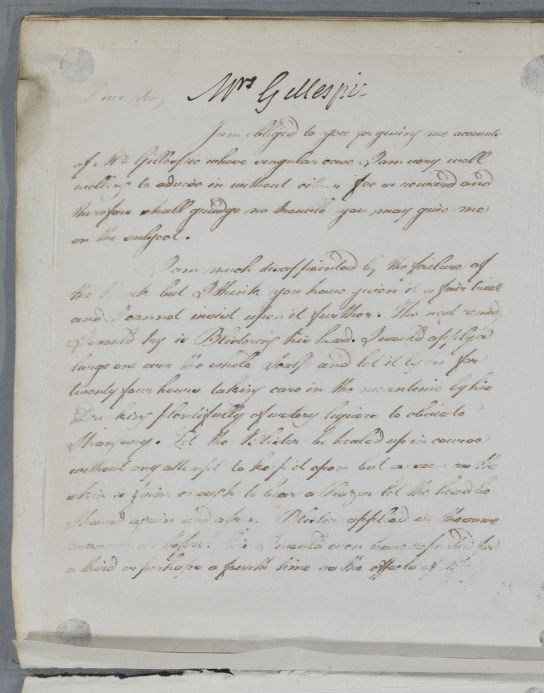 Dear Sir,
Mrs Gillespie
I am obliged to you for giving me accounts
of Mr. Gillespie whose singular case I am very well
willing to advise in without either fee or reward and
therefore shall grudge no trouble you may give me
on the subject.
I am much disappointed by the failure of
the Bark but I think you have given it a fair trial
and I cannot insist upon it further. The next remedy
I would try is Blistering his head. I would apply a
large one over the whole Scalp and let it ly on for
twenty four hours taking care in the meantime by his
Drinking plentifully of watery liquors to obviate
Strangury. Let the Blister be healed up in course
without any attempt to keep it open but as soon as the
skin is firm enough to bear a Razor let the head be
shaved again and after a Blister applied in the same
manner as before. This I would even have repeated for
a third or perhaps a fourth time as the effects of